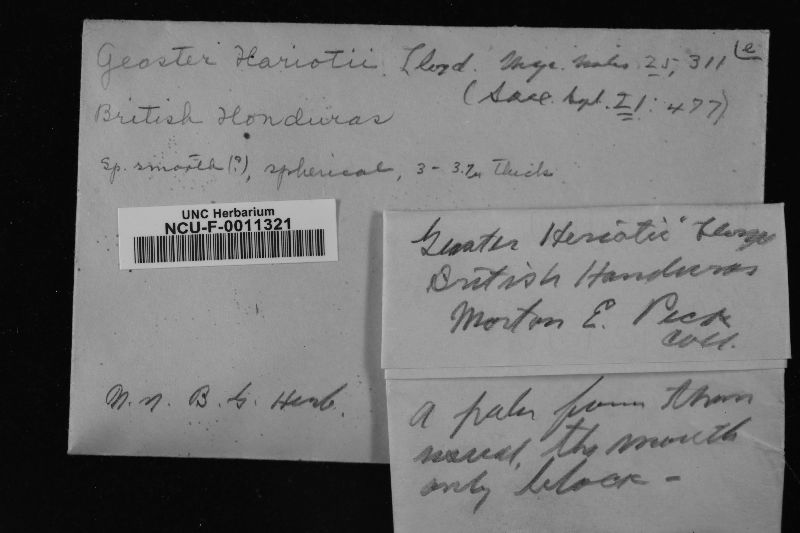 Geaster Hariotii Lloyd. Myc. Notes 25, 311 (e
(Sacc. Syl. 21: 477)
British Honduras
Sp. smooth (?), spherical, 3 - 3.7µ thick
UNC Herbarium
NCU-F-0011321
Geaster Heriotii" Lloyd
British Handuras
Morton E. Peck
Coll.
N. Y. B. G. Herb.
a paler form than
usual, the mouth
only black -